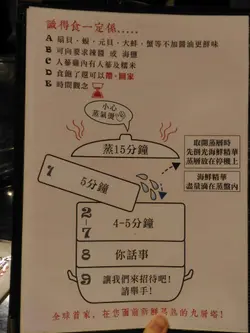 識得食一定係.....
A 扇貝，蟶，元貝，大蚌，蟹等不加醬油更鮮味
B 可向要求辣醬 或 海鹽
C 人蔘雞內有人蔘及糯米
D 食飽了還可以
E 時間觀念
小心
蒸氣燙
蒸15分鐘
取開蒸層時
先倒光海鮮精華
蒸層放在停機上
1
5分鐘
海鮮精華
盡量滴在蒸盤內
2-7
4-5分鐘
8
你話事
9
讓我們來招待吧!
請舉手!
全球首家，在您圍